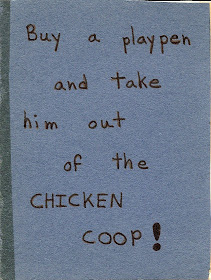 Buy a playpen
and take
him out
of the
CHICKEN
COOP!